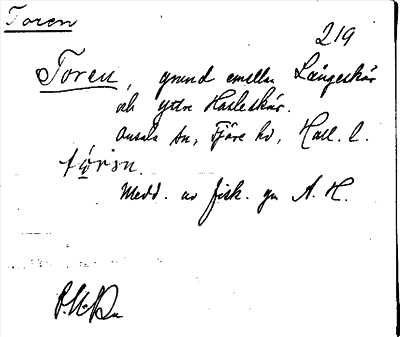 Toren
219
Toren, grund emellan Långeskär
och yttre Hasleskär.
Onsala sn, Fjäre hd, Hall. l.
tǿrsn.
Medd. av fisk. gm A. H.